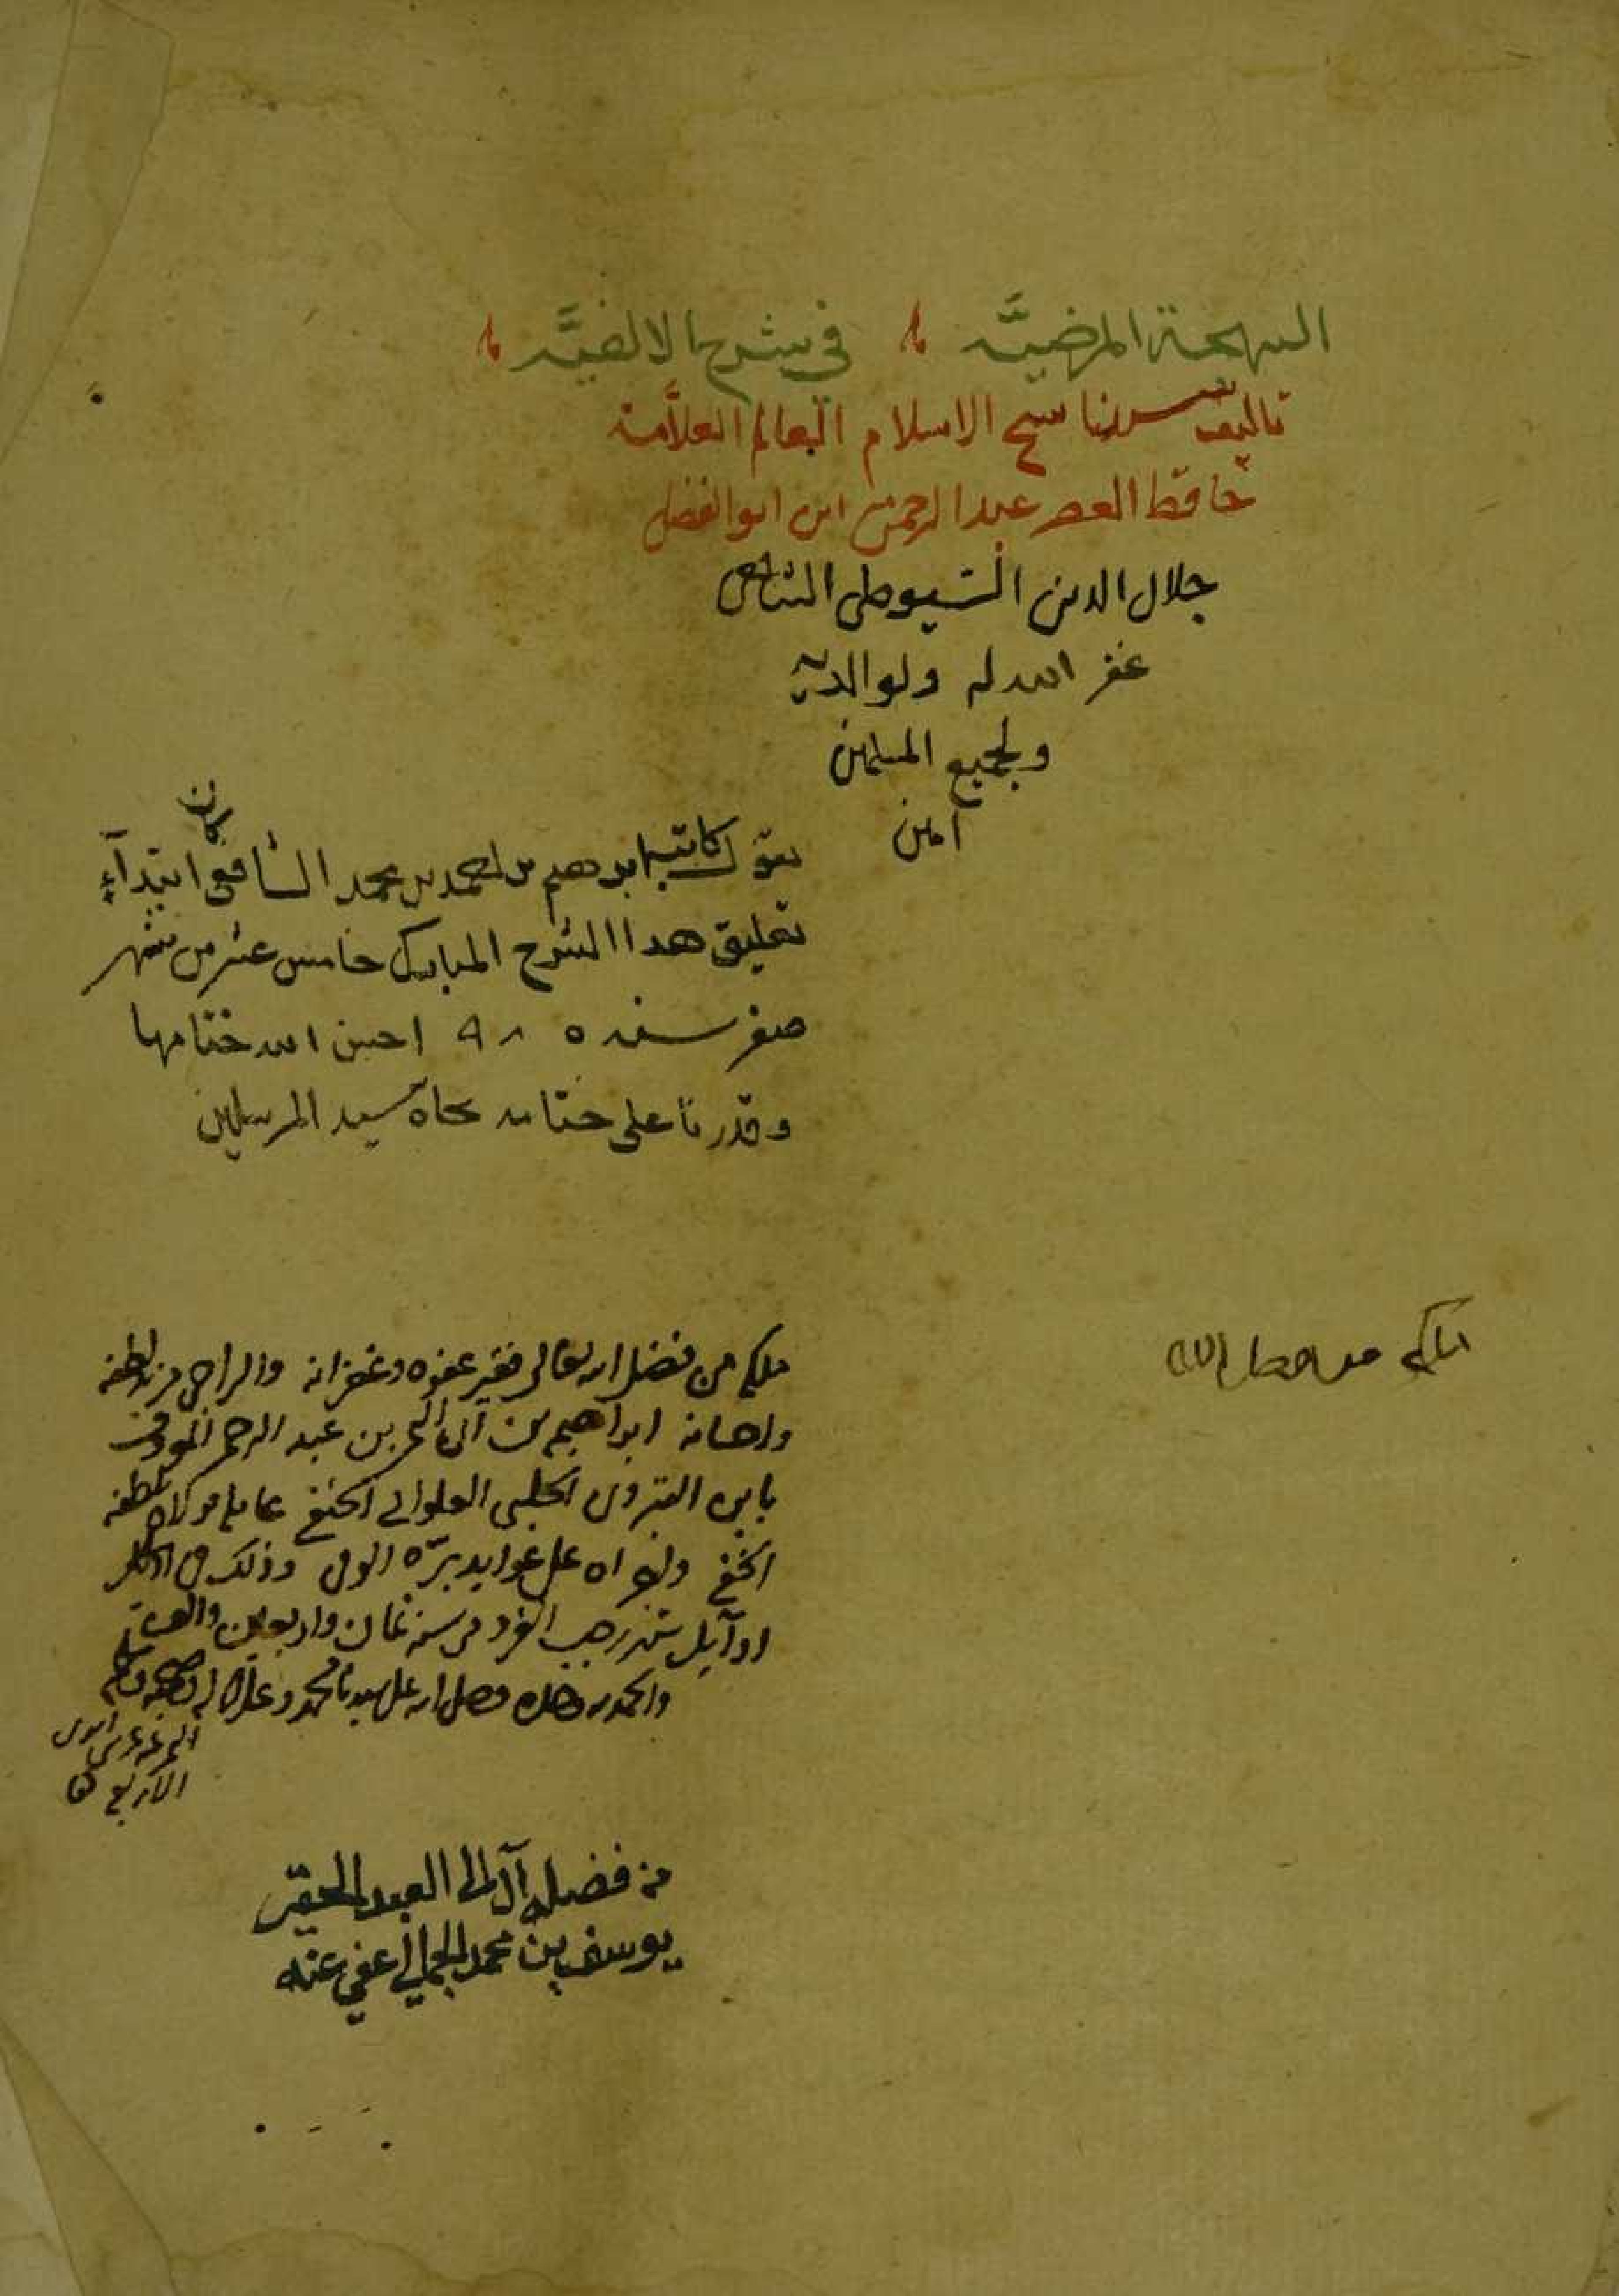 البهجة المرضيَّه في شرح الالفيَّه
تاليف سيدنا شيخ الاسلام العالم العلاَّمة
حافظ العصر عبد الرحمن ابن ابو الفضل
جلال الدين السيوطى الشافعى
غفر الله له ولوالديه
ولجميع المسلمين
امين
يقول كاتبه ابرهيم بن احمد بن محمد الشافعى كان ابتدآء
تعليق هدا الشرح المبارك خامس عشر من شهر
صفر سنه احسن الله ختامها
وقدرنا على ختامه بجاه سيد المرسلين
ملكه من فضل الله
ملكه من فضل الله تعالى فقير عفوه وغفرانه والراجى من لطفه
واحسانه ابراهيم بن ابى اليمن بن عبد الرحمن المعروف
البتروني الحلبي الحنفي عامله مولاه بلطفه
الخفي واجراه على عوايد بره الوفي وذلك في
اوآيل شهر رجب الفرد من سنة ثمان واربعين والف
والحمد لله وحده وصلى الله على سيدنا محمد وعلى اله وصحبه وسلم
من فضله آل الى العبد الحقير
يوسف بن محمد الجمالي عفي عنه